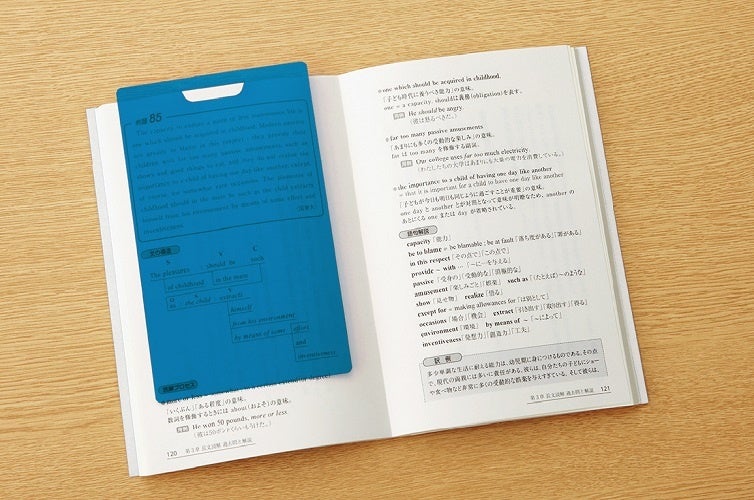 例題 85
The capacity to endure a more or less monotonous life is
one which should be acquired in childhood. Modern parents
are greatly to blame in this respect ; they provide their
children with far too many passive amusements, such as
shows and good things to eat, and they do not realize the
importance to a child of having one day like another, except,
of course, for somewhat rare occasions. The pleasures of
childhood should in the main be such as the child extracts
himself from his environment by means of some effort and
inventiveness.
文の構造
S V C
The pleasures should be such
of childhood in the main
O S V
as the child extracts
himself
from his environment
by means of some effort
and
inventiveness
読解プロセス
「いくぶん」「ある程度」の意味。
数詞を修飾するときには about(およそ)の意味。
用例 He won 50 pounds, more or less.
(彼は50ポンドくらいもうけた。)
120 第3章 長文読解 過去問と解説
one which should be acquired in childhood.
「子ども時代に養うべき能力」の意味。
one = a capacity. should は義務(obligation)を表す。
用例 He should be angry.
(彼は怒るべきだ。)
far too many passive amusements
「あまりにも多くの受動的な楽しみ」の意味。
far は too many を修飾する副詞。
用例 Our college uses far too much electricity.
(わたしたちの大学はあまりにも大量の電力を消費している。)
the importance to a child of having one day like another
= that it is important for a child to have one day like another
「子どもが今日も明日も同じように過ごすことが重要」の意味。
one day と another とが対照となって意味が明瞭なため、another の
あとにくる one または day が省略されている。
語句解説
capacity「能力」
be to blame = be blamable ; be at fault「落ち度がある」「罪がある」
in this respect「その点で」「この点で」
provide ~ with …「~に…を与える」
passive「受身の」「受動的な」「消極的な」
amusement「楽しみごと」「娯楽」 such as「(たとえば)~のような」
show「見せ物」 realize「悟る」
except for = making allowances for「は別として」
occasions「場合」「機会」 extract「引き出す」「取り出す」「得る」
environment「環境」 by means of ~「~によって」
inventiveness「発想力」「創造力」「工夫」
訳例
多少単調な生活に耐える能力は、幼児期に身につけるものである。その点
で、現代の両親には多いに責任がある。彼らは、自分たちの子どもにショー
や食べ物など非常に多くの受動的な娯楽を与えすぎている。そして彼らは、
第3章 長文読解 過去問と解説 121